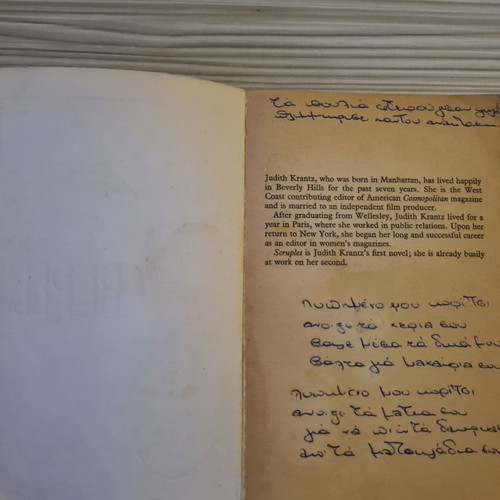 τά πουλιά
Judith Krantz, who was born in Manhattan, has lived happily
in Beverly Hills for the past seven years. She is the West
Coast contributing editor of American Cosmopolitan magazine
and is married to an independent film producer.
After graduating from Wellesley, Judith Krantz lived for a
year in Paris, where she worked in public relations. Upon her
return to New York, she began her long and successful career
as an editor in women's magazines.
Scruples is Judith Krantz's first novel; she is already busily
at work on her second.
λυπημένο μου κορίτσι
ανοιξε τά χερια σου
βαλε μέσα τά δικά μου
λυπημένο μου κορίτσι
ανοιξε τά ματια σου
γιά νά πιω τά